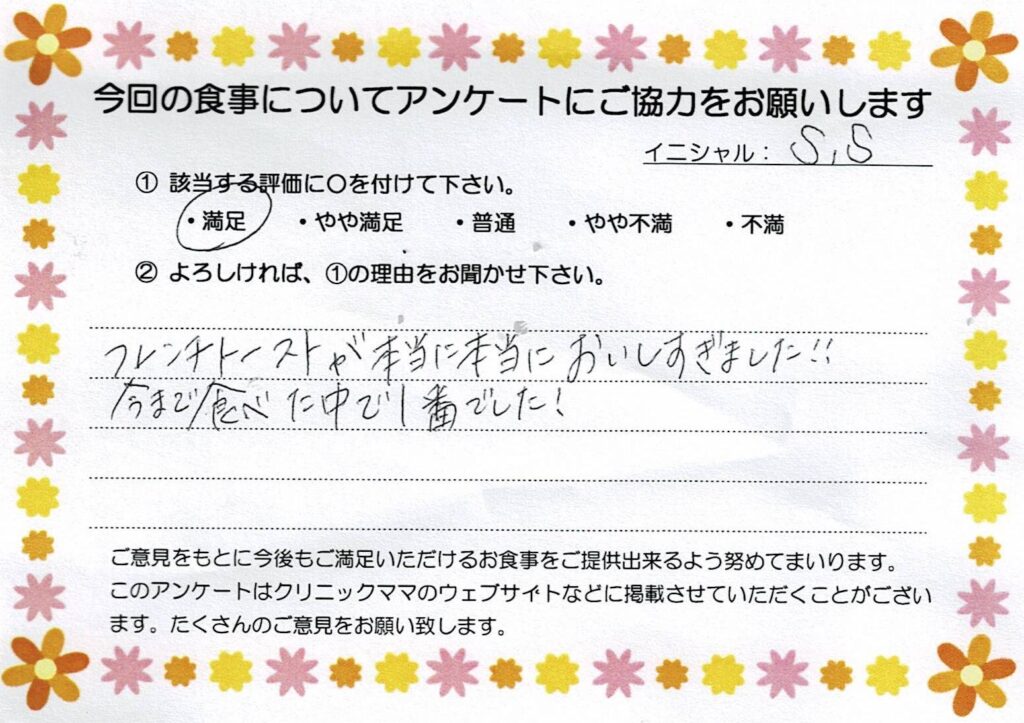 今回の食事についてアンケートにご協力をお願いします
イニシャル： S,S
① 該当する評価に〇を付けて下さい。
・満足 ・やや満足 ・普通 ・やや不満 ・不満
② よろしければ、①の理由をお聞かせ下さい。
フレンチトーストが本当に本当においしすぎました!!
今まで食べた中で1番でした!
ご意見をもとに今後もご満足いただけるお食事をご提供出来るよう努めてまいります。
このアンケートはクリニックママのウェブサイトなどに掲載させていただくことがござい
ます。たくさんのご意見をお願い致します。